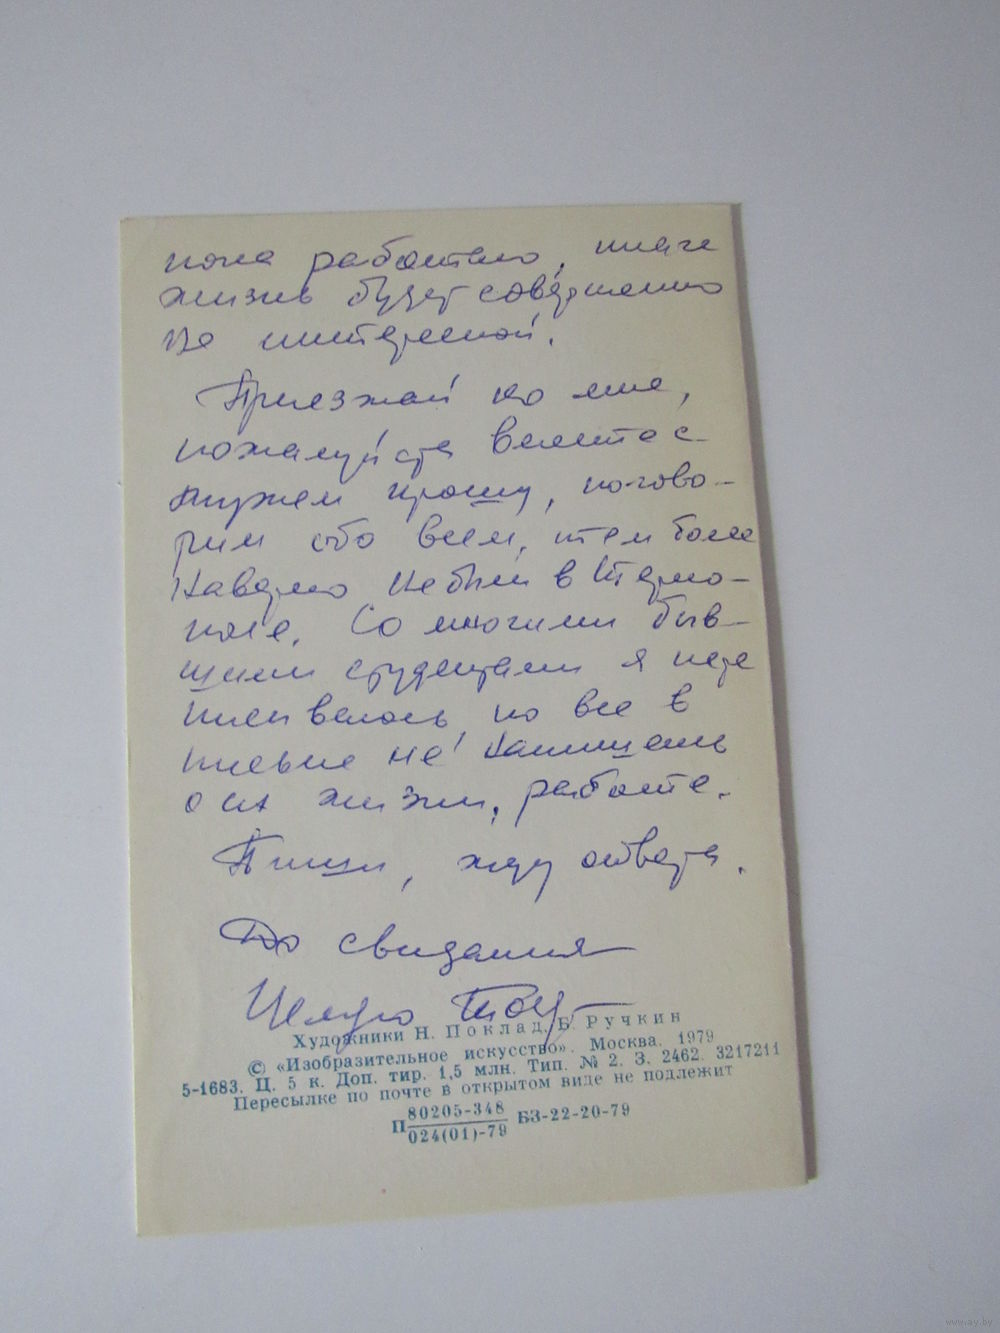 пока работаю, иначе
жизнь будет совершенно
не интересной.
Приезжай ко мне,
пожалуйста вместе с
мужем прошу, погово-
рим обо всем, тем более
наверно не были в Терно-
поле. Со многими быв-
шими студентами я пере
писываюсь но все в
письме не напишешь
о их жизни, работе.
Пиши, жду ответа.
До свидания
Целую
Художники Н. Поклад, Б. Ручкин
© «Изобразительное искусство». Москва. 1979
5-1683. Ц. 5 к. Доп. тир. 1,5 млн. Тип. № 2. З. 2462. 3217211
Пересылке по почте в открытом виде не подлежит
П 80205-348 БЗ-22-20-79
024(01)-79
www.ay.by